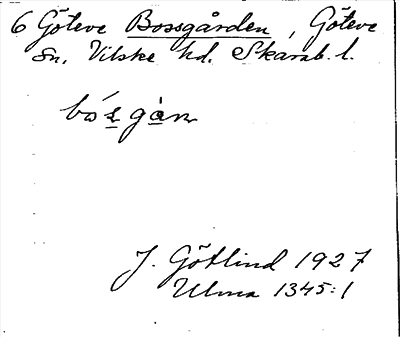 6 Göteve Bossgården, Göteve
sn, Vilske hd. Skarab. l.
bósgàn
J. Götlind 1927
Ulma 1345:1